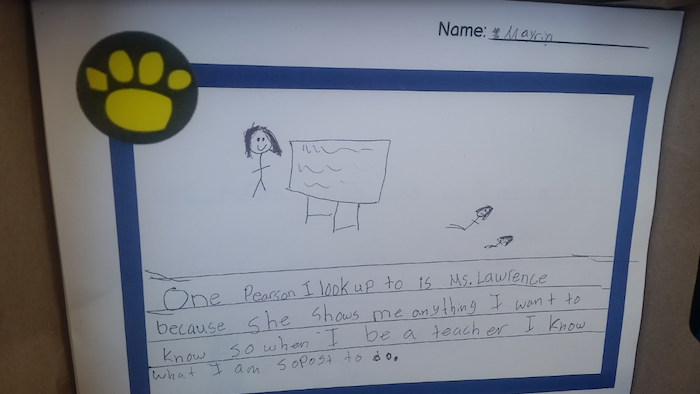 Name: Mayrin
One Pearson I look up to is Ms. Lawrence
because she shows me anything I want to
know so when I be a teacher I know
what I am sopost to do.